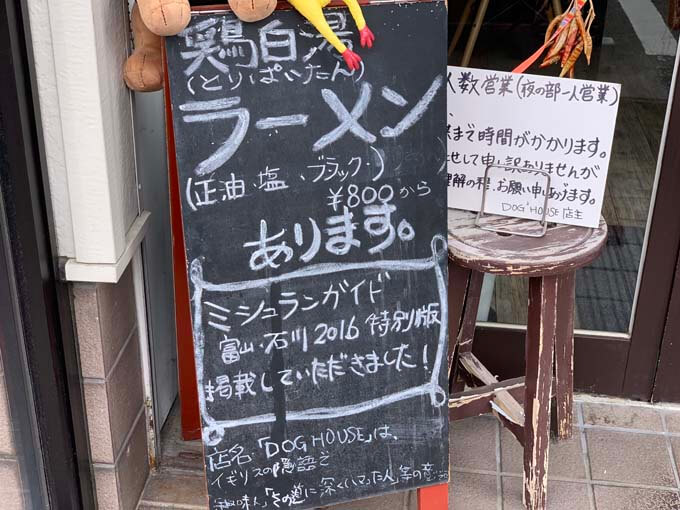 鶏白湯
(とりぱいたん)
ラーメン
(正油、塩、ブラック・)
¥800から
あります。
ミシュランガイド
富山・石川2016 特別版
掲載していただきました!
店名「DOG HOUSE」は、
イギリスの隠語で
趣味人「その道に深くハマった人」等の意
人数営業(夜の部一人営業)
まで時間がかかります。
せして申し訳ありませんが
理解の程、お願い申しあげます。
DOG HOUSE 店主